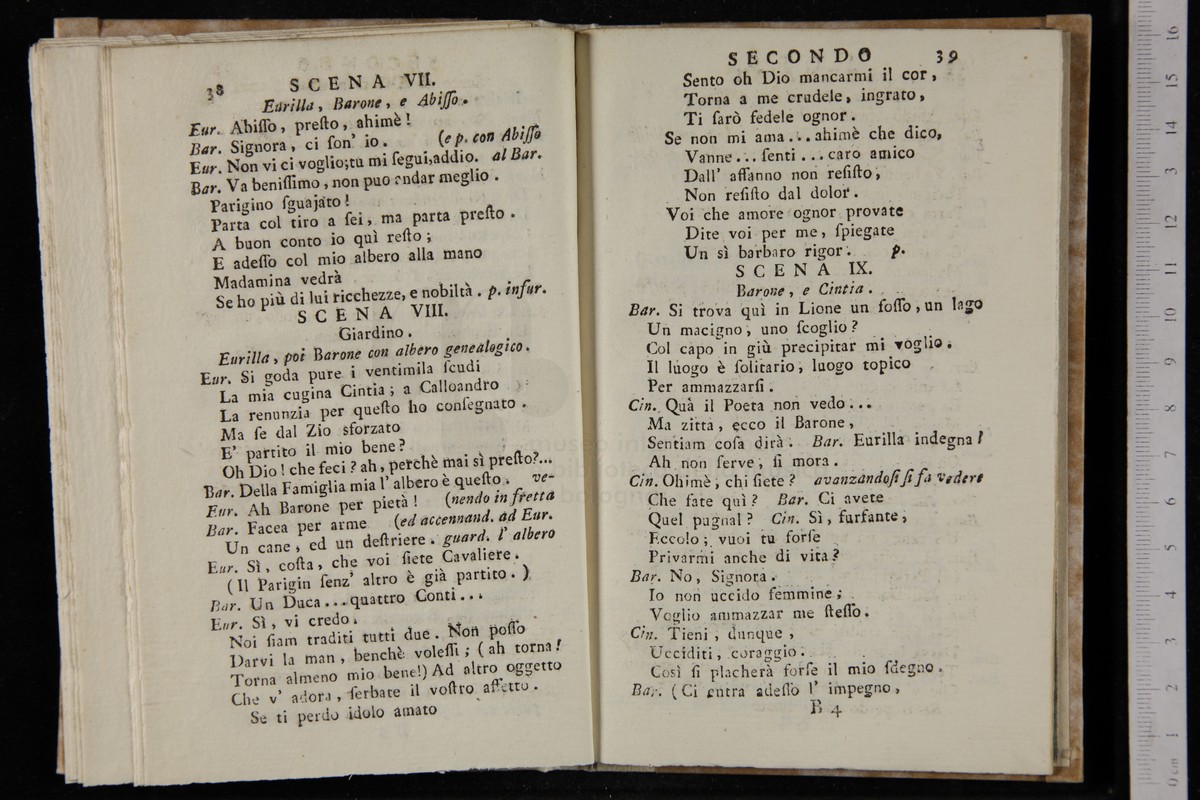 38
SCENA VII.
Eurilla, Barone, e Abiſſo.
Eur. Abiſſo, preſto, ahimè!
Bar. Signora, ci ſon' io. (e p. con Abiſſo
Eur. Non vi ci voglio; tu mi ſegui, addio. al Bar.
Bar. Va beniſſimo, non puo andar meglio.
Parigino ſguajato!
Parta col tiro a ſei, ma parta preſto.
A buon conto io quì reſto;
E adeſſo col mio albero alla mano
Madamina vedrà
Se ho più di lui ricchezze, e nobiltà. p. infur.
SCENA VIII.
Giardino.
Eurilla, poi Barone con albero genealogico.
Eur. Si goda pure i ventimila ſcudi
La mia cugina Cintia; a Calloandro
La renunzia per queſto ho conſegnato.
Ma ſe dal Zio sforzato
E' partito il mio bene?
Oh Dio! che feci? ah, perchè mai sì preſto?...
Bar. Della Famiglia mia l' albero è queſto. ve-
Eur. Ah Barone per pietà! (nendo in fretta
Bar. Facea per arme (ed accennand. ad Eur.
Un cane, ed un deſtriere. guard. l' albero
Eur. Sì, coſta, che voi ſiete Cavaliere.
(Il Parigin ſenz' altro è già partito.)
Bar. Un Duca... quattro Conti...
Eur. Sì, vi credo.
Noi ſiam traditi tutti due. Non poſſo
Darvi la man, benchè voleſſi; (ah torna!
Torna almeno mio bene!) Ad altro oggetto
Che v' adora, ſerbate il voſtro affetto.
Se ti perdo idolo amato
SECONDO 39
Sento oh Dio mancarmi il cor,
Torna a me crudele, ingrato,
Ti ſarò fedele ognor.
Se non mi ama... ahimè che dico,
Vanne... ſenti... caro amico
Dall' affanno non reſiſto,
Non reſiſto dal dolor.
Voi che amore ognor provate
Dite voi per me, ſpiegate
Un sì barbaro rigor. p.
SCENA IX.
Barone, e Cintia.
Bar. Si trova quì in Lione un foſſo, un lago
Un macigno, uno ſcoglio?
Col capo in giù precipitar mi voglio.
Il luogo è ſolitario, luogo topico
Per ammazzarſi.
Cin. Quà il Poeta non vedo...
Ma zitta, ecco il Barone,
Sentiam coſa dirà. Bar. Eurilla indegna!
Ah non ſerve, ſi mora.
Cin. Ohimè, chi ſiete? avanzandoſi ſi fa vedere
Che fate quì? Bar. Ci avete
Quel pugnal? Cin. Sì, furfante,
Eccolo; vuoi tu forſe
Privarmi anche di vita?
Bar. No, Signora.
Io non uccido femmine;
Voglio ammazzar me ſteſſo.
Cin. Tieni, dunque,
Ucciditi, coraggio.
Così ſi placherà forſe il mio ſdegno.
Bar. (Ci entra adeſſo l' impegno,
B 4